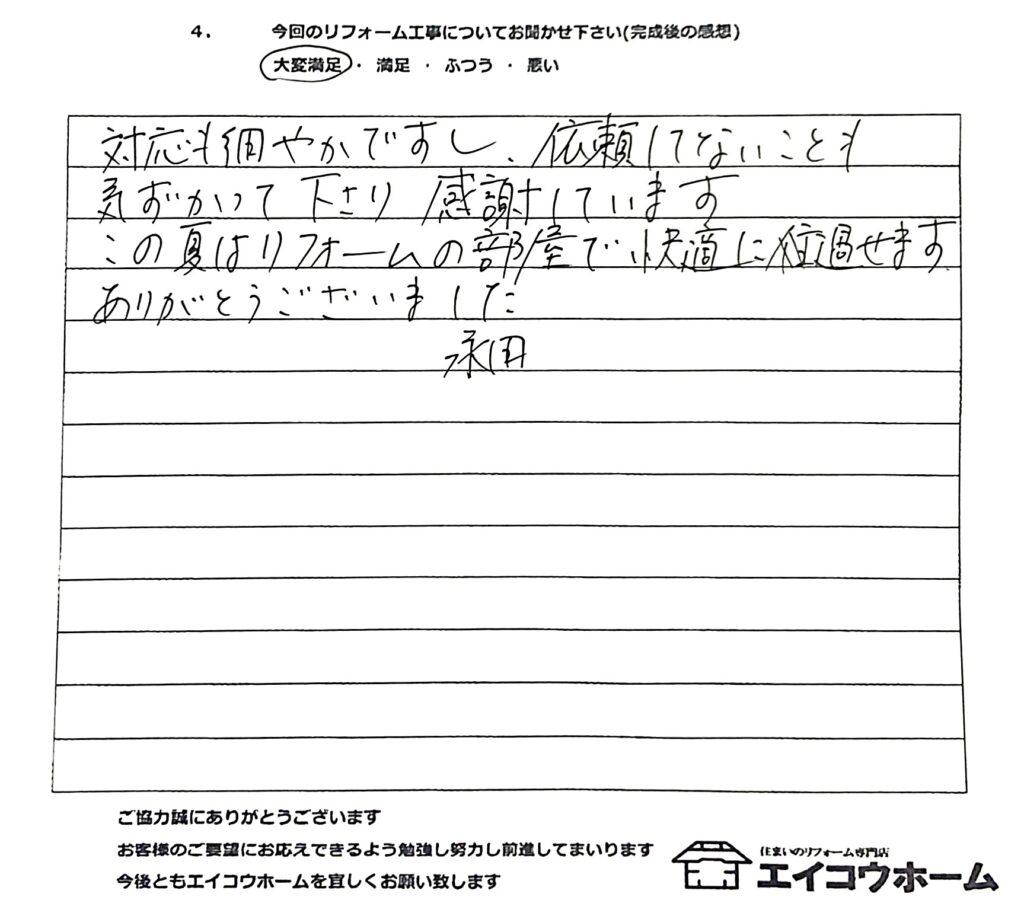 4. 今回のリフォーム工事についてお聞かせ下さい(完成後の感想)
大変満足・ 満足 ・ ふつう ・ 悪い
対応も細やかですし、依頼してないことも
気ずかって下さり 感謝しています
この夏はリフォームの部屋で快適に過せます
ありがとうございました
永田
ご協力誠にありがとうございます
お客様のご要望にお応えできるよう勉強し努力し前進してまいります
今後ともエイコウホームを宜しくお願い致します
住まいのリフォーム専門店
エイコウホーム